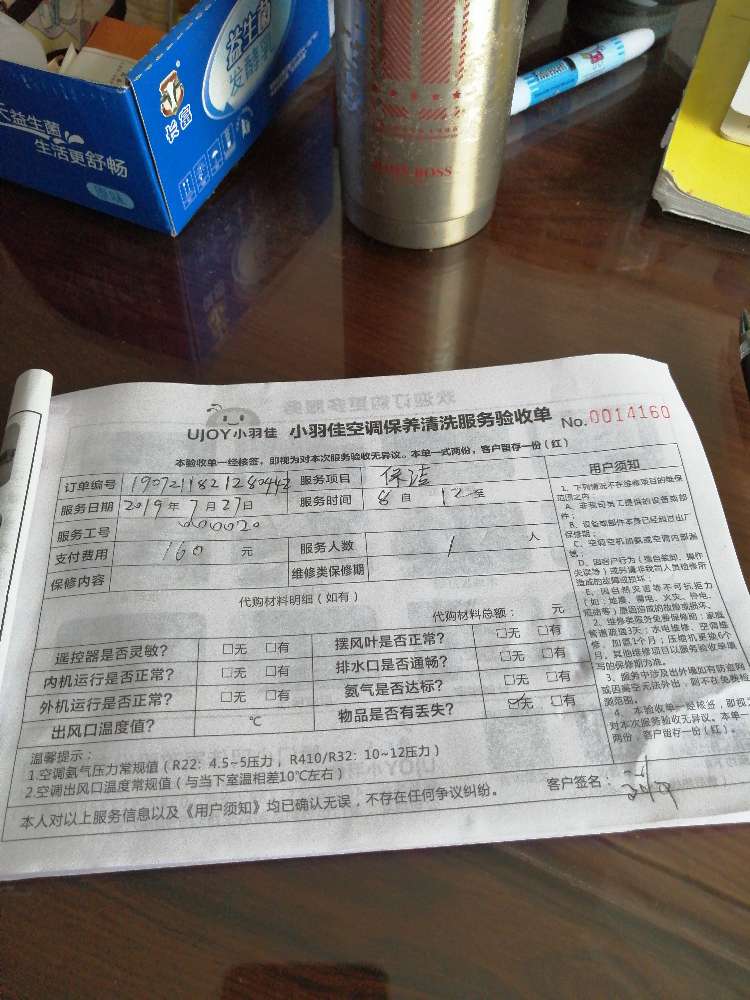 益生菌
发酵乳
长富
长益生菌
生活更舒畅
BOSS
UJOY小羽佳 小羽佳空调保养清洗服务验收单 No.0014160
本验收单一经核签，即视为对本次服务验收无异议。本单一式两份，客户留存一份（红）
订单编号 服务项目 保洁
服务日期 2019年7月27日 服务时间 8自 12至
服务工号 000020
支付费用 160 元 服务人数 1 人
保修内容 维修类保修期
代购材料明细（如有）
代购材料总额： 元
遥控器是否灵敏？ □无 □有 摆风叶是否正常？ □无 □有
内机运行是否正常？ □无 □有 排水口是否通畅？ □无 □有
外机运行是否正常？ □无 □有 氨气是否达标？ □无 □有
出风口温度值？ ℃ 物品是否有丢失？ ☑无 □有
温馨提示：
1.空调氨气压力常规值（R22: 4.5~5压力，R410/R32: 10~12压力）
2.空调出风口温度常规值（与当下室温相差10℃左右）
本人对以上服务信息以及《用户须知》均已确认无误，不存在任何争议纠纷。 客户签名：
用户须知
1、下列情况不在维修项目的维保
范围之内：
A、非我司员工提供的设备或部
件；
B、设备或部件本身已经超过出厂
保修期；
造成的故障或损坏；
E、因自然灾害等不可抗拒力
2、维修类服务免费保修期：家庭
管道疏通3天；水电维修、空调维
修、加氨1个月；压缩机更换6个
月，其他维修项目以服务验收单填
写的保修期为准。
3、服务中涉及出外墙如有防盗网
4、本验收单一经核签，即视为
对本次服务验收无异议。本单一式
两份，客户留存一份（红）。